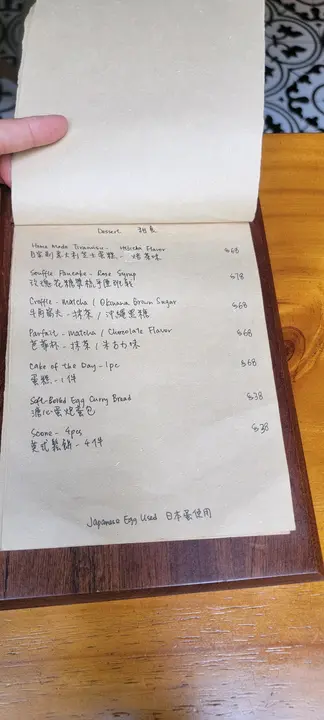 Dessert 甜品
Home Made Tiramisu - Hojicha Flavor $68
自家制意大利芝士蛋糕 - 焙茶味
Souffle Pancake - Rose Syrup $78
玫瑰花糖漿梳乎厘班戟
Croffle - Matcha / Okinawa Brown Sugar $68
牛角窩夫 - 抹茶 / 沖繩黑糖
Parfait - Matcha / Chocolate Flavor $68
芭菲杯 - 抹茶 / 朱古力味
Cake of the Day - 1pc $68
蛋糕 - 1件
Soft-Boiled Egg Curry Bread $38
溏心蛋咖喱包
Scone - 4pcs $38
英式鬆餅 - 4件
Japanese Egg Used 日本蛋使用